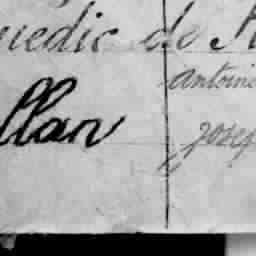 medic de
llan
antoine
Josep